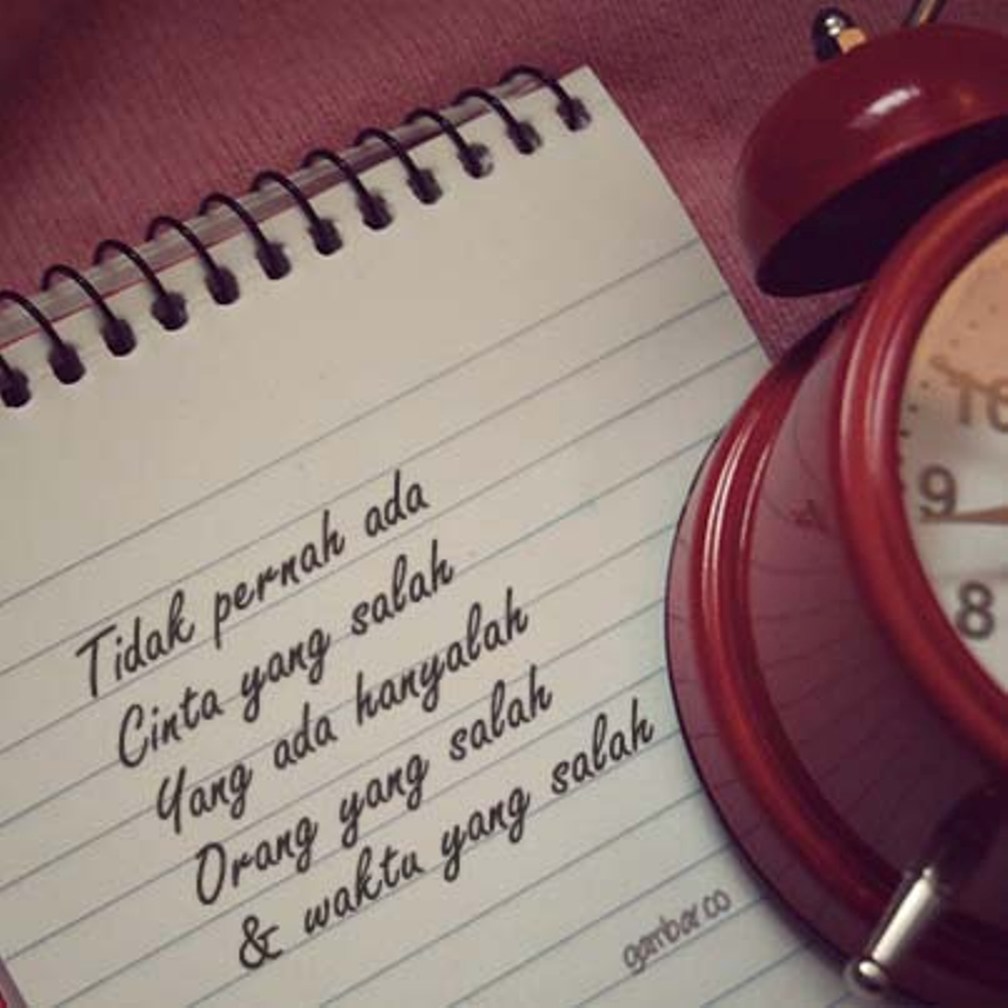 Tidak pernah ada
Cinta yang salah
Yang ada hanyalah
Orang yang salah
& waktu yang salah
gambar.co
10
9
8